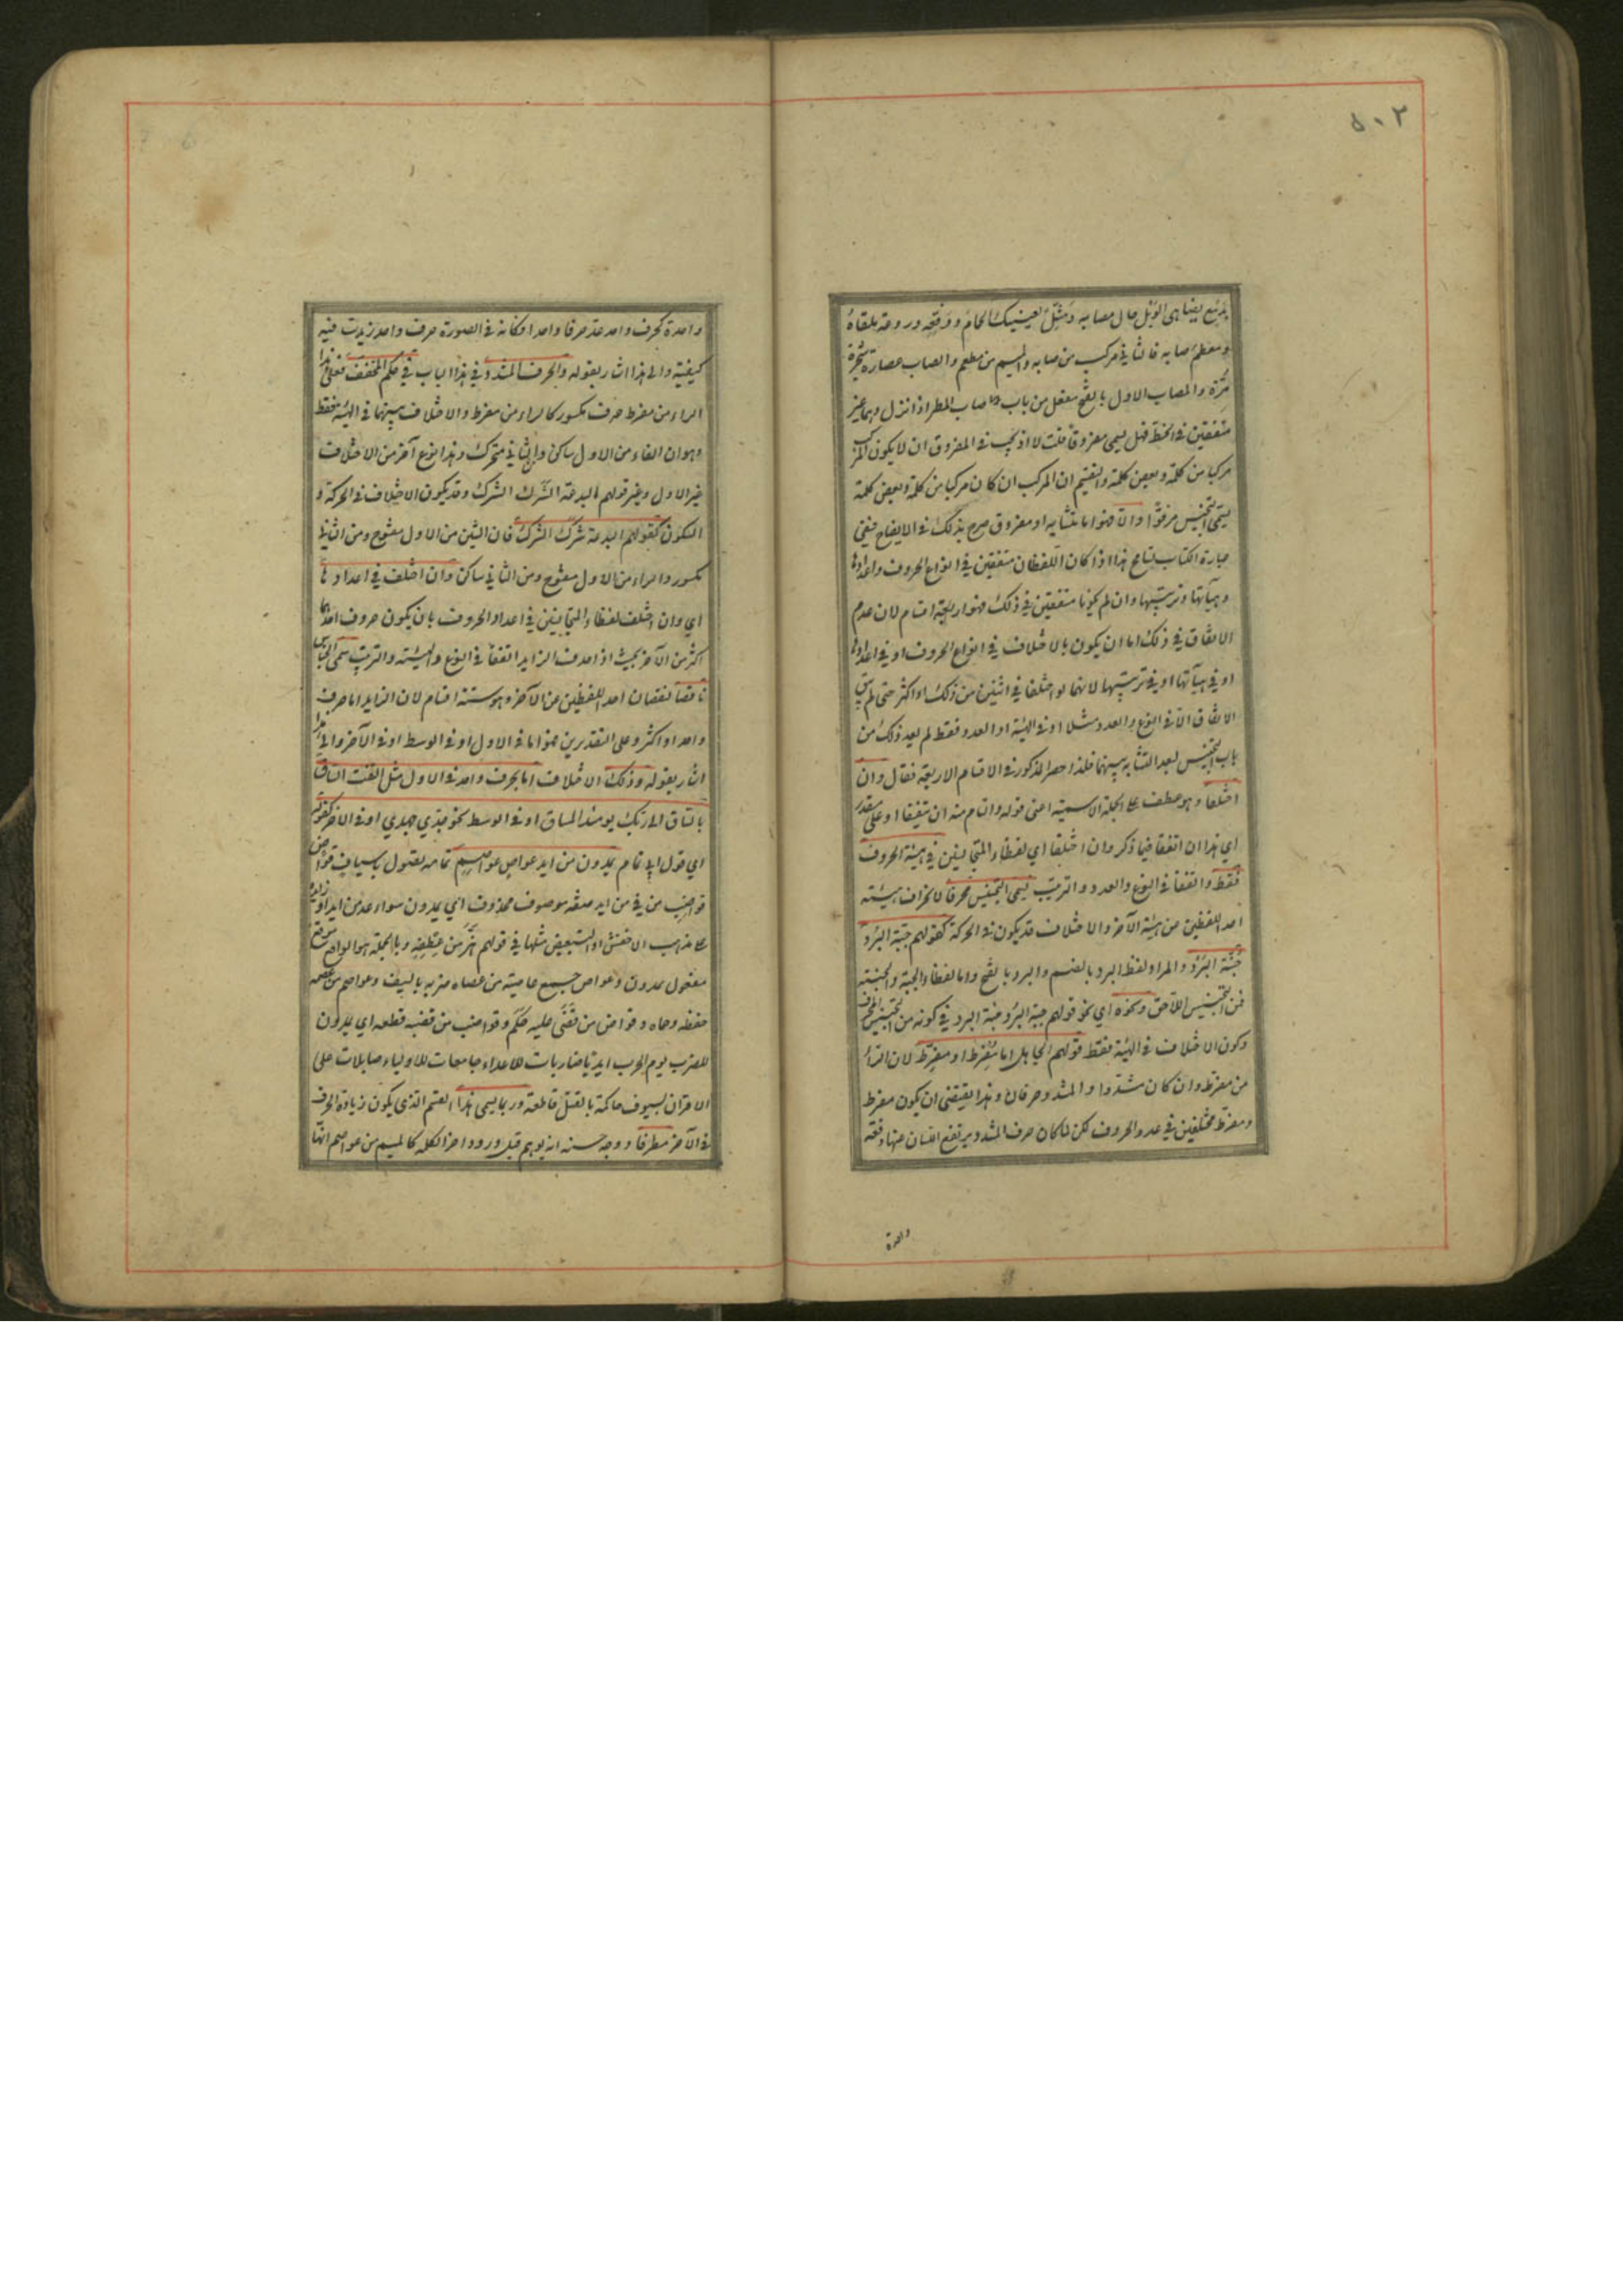 ٥٠٢
بدمع يضاهي الوبل حال مصابه ومثل لعينيك الحمام ووقعه وروعة ملقاه
ومطعم صابه فالثاني مركب من صابه والميم من مطعم والصاب عصارة شجرة
مرة والمصاب الاول بالفتح مفعل من باب صاب المطر اذا نزل وهما غير
متفقين في الخط فهل يسمى مفروقا قلت لا اذ يجب في المفروق ان لا يكون المركب
مركبا من كلمة وبعض كلمة والتقسيم ان المركب ان كان مركبا من كلمة وبعض كلمة
يسمى التجنيس مرفوا والا فهو اما متشابه او مفروق صرح بذلك في الايضاح ففي
عبارة الكتاب تسامح هذا اذا كان اللفظان متفقين في انواع الحروف واعدادها
وهيآتها وترتيبها وان لم يكونا متفقين في ذلك فهو اربعة اقسام لان عدم
الاتفاق في ذلك اما ان يكون بالاختلاف في انواع الحروف او في اعدادها
او في هيآتها او في ترتيبها لانهما لو اختلفا في اثنين من ذلك او اكثر حتى لم يبق
الاتفاق الا في النوع والعدد مثلا او في الهيئة او العدد فقط لم يعد ذلك من
باب التجنيس لبعد التشابه بينهما فلذا حصر المذكور في الاقسام الاربعة فقال وان
اختلفا وهو عطف على الجملة الاسمية اعني قوله والتام منه ان يتفقا او على مقدر
اي هذا ان اتفقا فيما ذكر وان اختلفا اي لفظا المتجانسين في هيئة الحروف
فقط واتفقا في النوع والعدد والترتيب يسمى التجنيس محرفا لانحراف هيئة
احد اللفظين من هيئة الآخر والاختلاف قد يكون في الحركة كقولهم جبة البرد
جنة البرد والمراد لفظ البرد بالضم والبرد بالفتح واما لفظا الجبة والجنة
فمن التجنيس اللاحق ونحوه اي نحو قولهم جبة البرد جنة البرد في كونه من التجنيس المحرف
وكون الاختلاف في الهيئة فقط قولهم الجاهل اما مفرط او مفرط لان الراء
من مفرط وان كان مشددا والمشدد حرفان وهذا يقتضي ان يكون مفرط
ومفرط مختلفين في عدد الحروف لكن لما كان حرف المشدد يرتفع اللسان عنها دفعة
واحدة
واحدة كحرف واحد عد حرفا واحدا وكانه في الصورة حرف واحد زيدت فيه
كيفية والى هذا اشار بقوله والحرف المشدد في هذا الباب في حكم المخفف فعلى هذا
الراء من مفرط حرف مكسور كالراء من مفرط والاختلاف بينهما في الهيئة فقط
وهو ان الفاء من الاول ساكن والثاني متحرك وهذا نوع آخر من الاختلاف
غير الاول وغير قولهم البدعة الشرك الشرك وقد يكون الاختلاف في الحركة و
السكون كقولهم البدعة شرك الشرك فان الشين من الاول مفتوح ومن الثاني
مكسور والراء من الاول مفتوح ومن الثاني ساكن وان اختلف في اعدادها
اي وان اختلف لفظا المتجانسين في اعداد الحروف بان يكون حروف احدهما
اكثر من الآخر بحيث اذا حذف الزايد اتفقا في النوع والهيئة والترتيب سمى الجناس
ناقصا لنقصان احد اللفظين عن الآخر وهو ستة اقسام لان الزايد اما حرف
واحد او اكثر وعلى التقديرين فهو اما في الاول او في الوسط او في الآخر والى هذا
اشار بقوله وذلك الاختلاف اما بحرف واحد في الاول مثل التفت الساق
بالساق الى ربك يومئذ المساق او في الوسط نحو جدي جهدي او في الآخر كقوله
اي قول ابي تمام يمدون من ايد عواص عواصم تمامه يصول باسياف قواض
قواضب من في من ايد صفة موصوف محذوف اي يمدون سواعد من ايد او زايدة
على مذهب الاخفش او للتبعيض مثلها في قولهم هز من عطفه وبالجملة هو الواقع موقع
مفعول يمدون وعواص جمع عاصية من عصاه ضربه بالسيف وعواصم من عصمه
حفظه وحماه وقواض من قضى عليه حكم وقواضب من قضبه قطعه اي يمدون
للضرب يوم الحرب ايديا ضاربات للاعداء حاميات للاولياء صايلات على
الاقران بسيوف حاكمة بالقتل قاطعة وربما يسمى هذا القسم الذي يكون زيادة الحرف
في الآخر مطرفا ووجه حسنه انه يوهم قبل ورود اخر الكلمة كالميم من عواصم انها